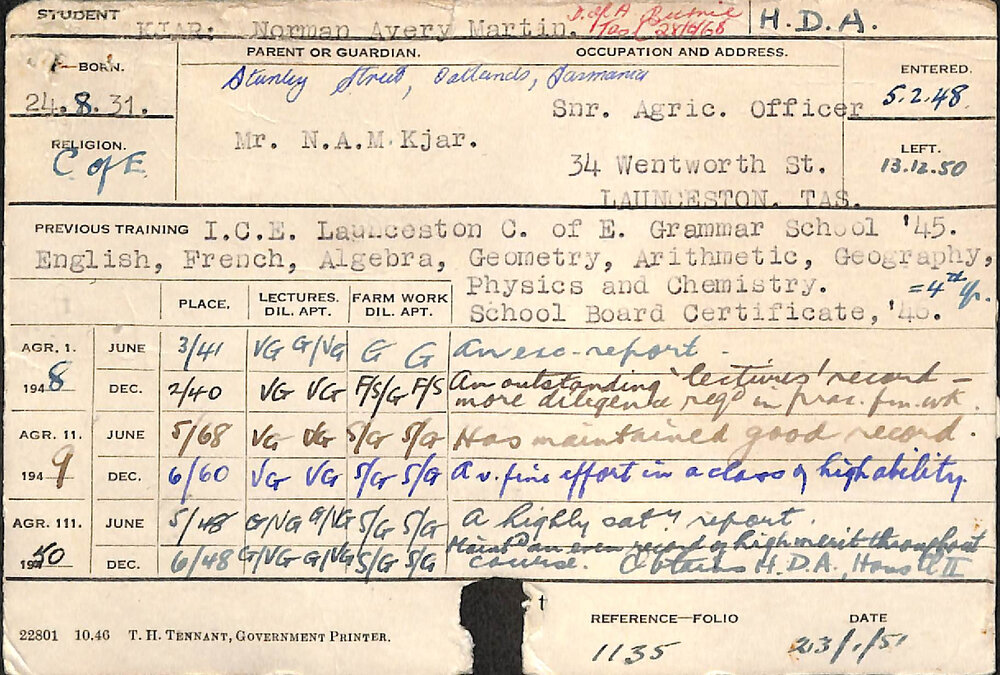 STUDENT
KJAR: Norman Avery Martin. D. of A Burnie H.D.A.
Tas 28/2/68
BORN. PARENT OR GUARDIAN. OCCUPATION AND ADDRESS. ENTERED.
24.8.31. Stanley Street, Oatlands, Tasmania 5.2.48.
Snr. Agric. Officer
RELIGION. Mr. N.A.M.Kjar. LEFT.
C of E 34 Wentworth St. 13.12.50
LAUNCESTON. TAS.
PREVIOUS TRAINING I.C.E. Launceston C. of E. Grammar School '45.
English, French, Algebra, Geometry, Arithmetic, Geography,
Physics and Chemistry. =4th yr.
School Board Certificate,'46.
PLACE. LECTURES. DIL. APT. FARM WORK DIL. APT.
AGR. 1. JUNE 3/41 VG G/VG G G An exc. report.
1948 DEC. 2/40 VG VG F/S/G F/S An outstanding 'lectures' record –
more diligence reqd in prac. fm. wk.
AGR. 11. JUNE 5/68 VG VG S/G S/G Has maintained good record.
1949 DEC. 6/60 VG VG S/G S/G A v. fine effort in a class of high ability.
AGR. 111. JUNE 5/48 G/VG G/VG S/G S/G A highly saty report.
1950 DEC. 6/48 G/VG G/VG S/G S/G Maintd an even record of high merit throughout
course. Obtains H.D.A., Hons II
22801 10.46 T. H. TENNANT, GOVERNMENT PRINTER. t REFERENCE—FOLIO DATE
1135 23/1/51